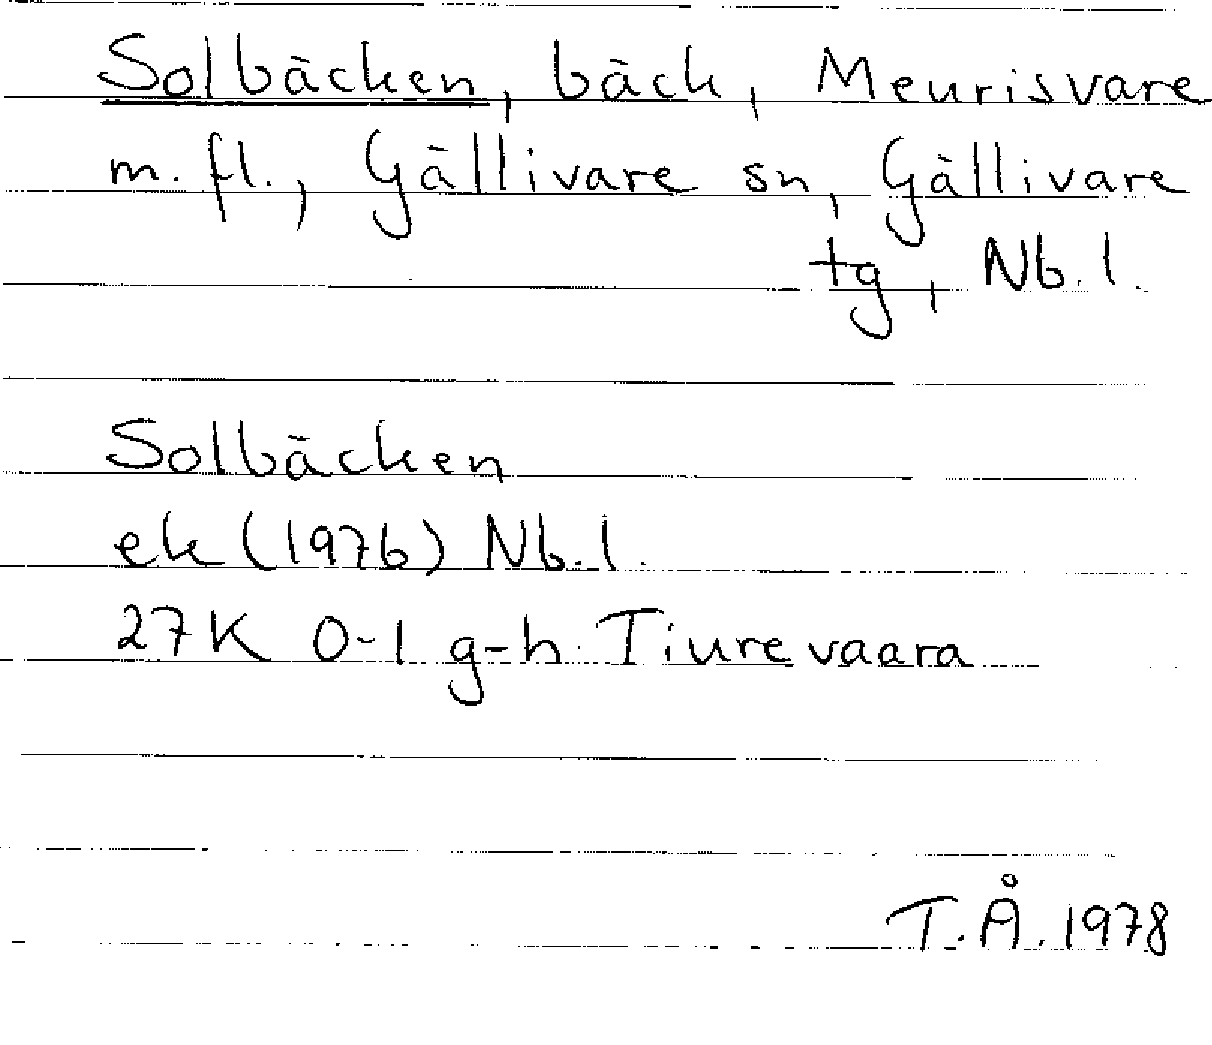 Solbäcken, bäck, Meurisvare
m. fl., Gällivare sn, Gällivare
tg, Nb. l.
Solbäcken
ek (1976) Nb. l.
27K 0-1 g-h Tiurevaara
T.Å. 1978